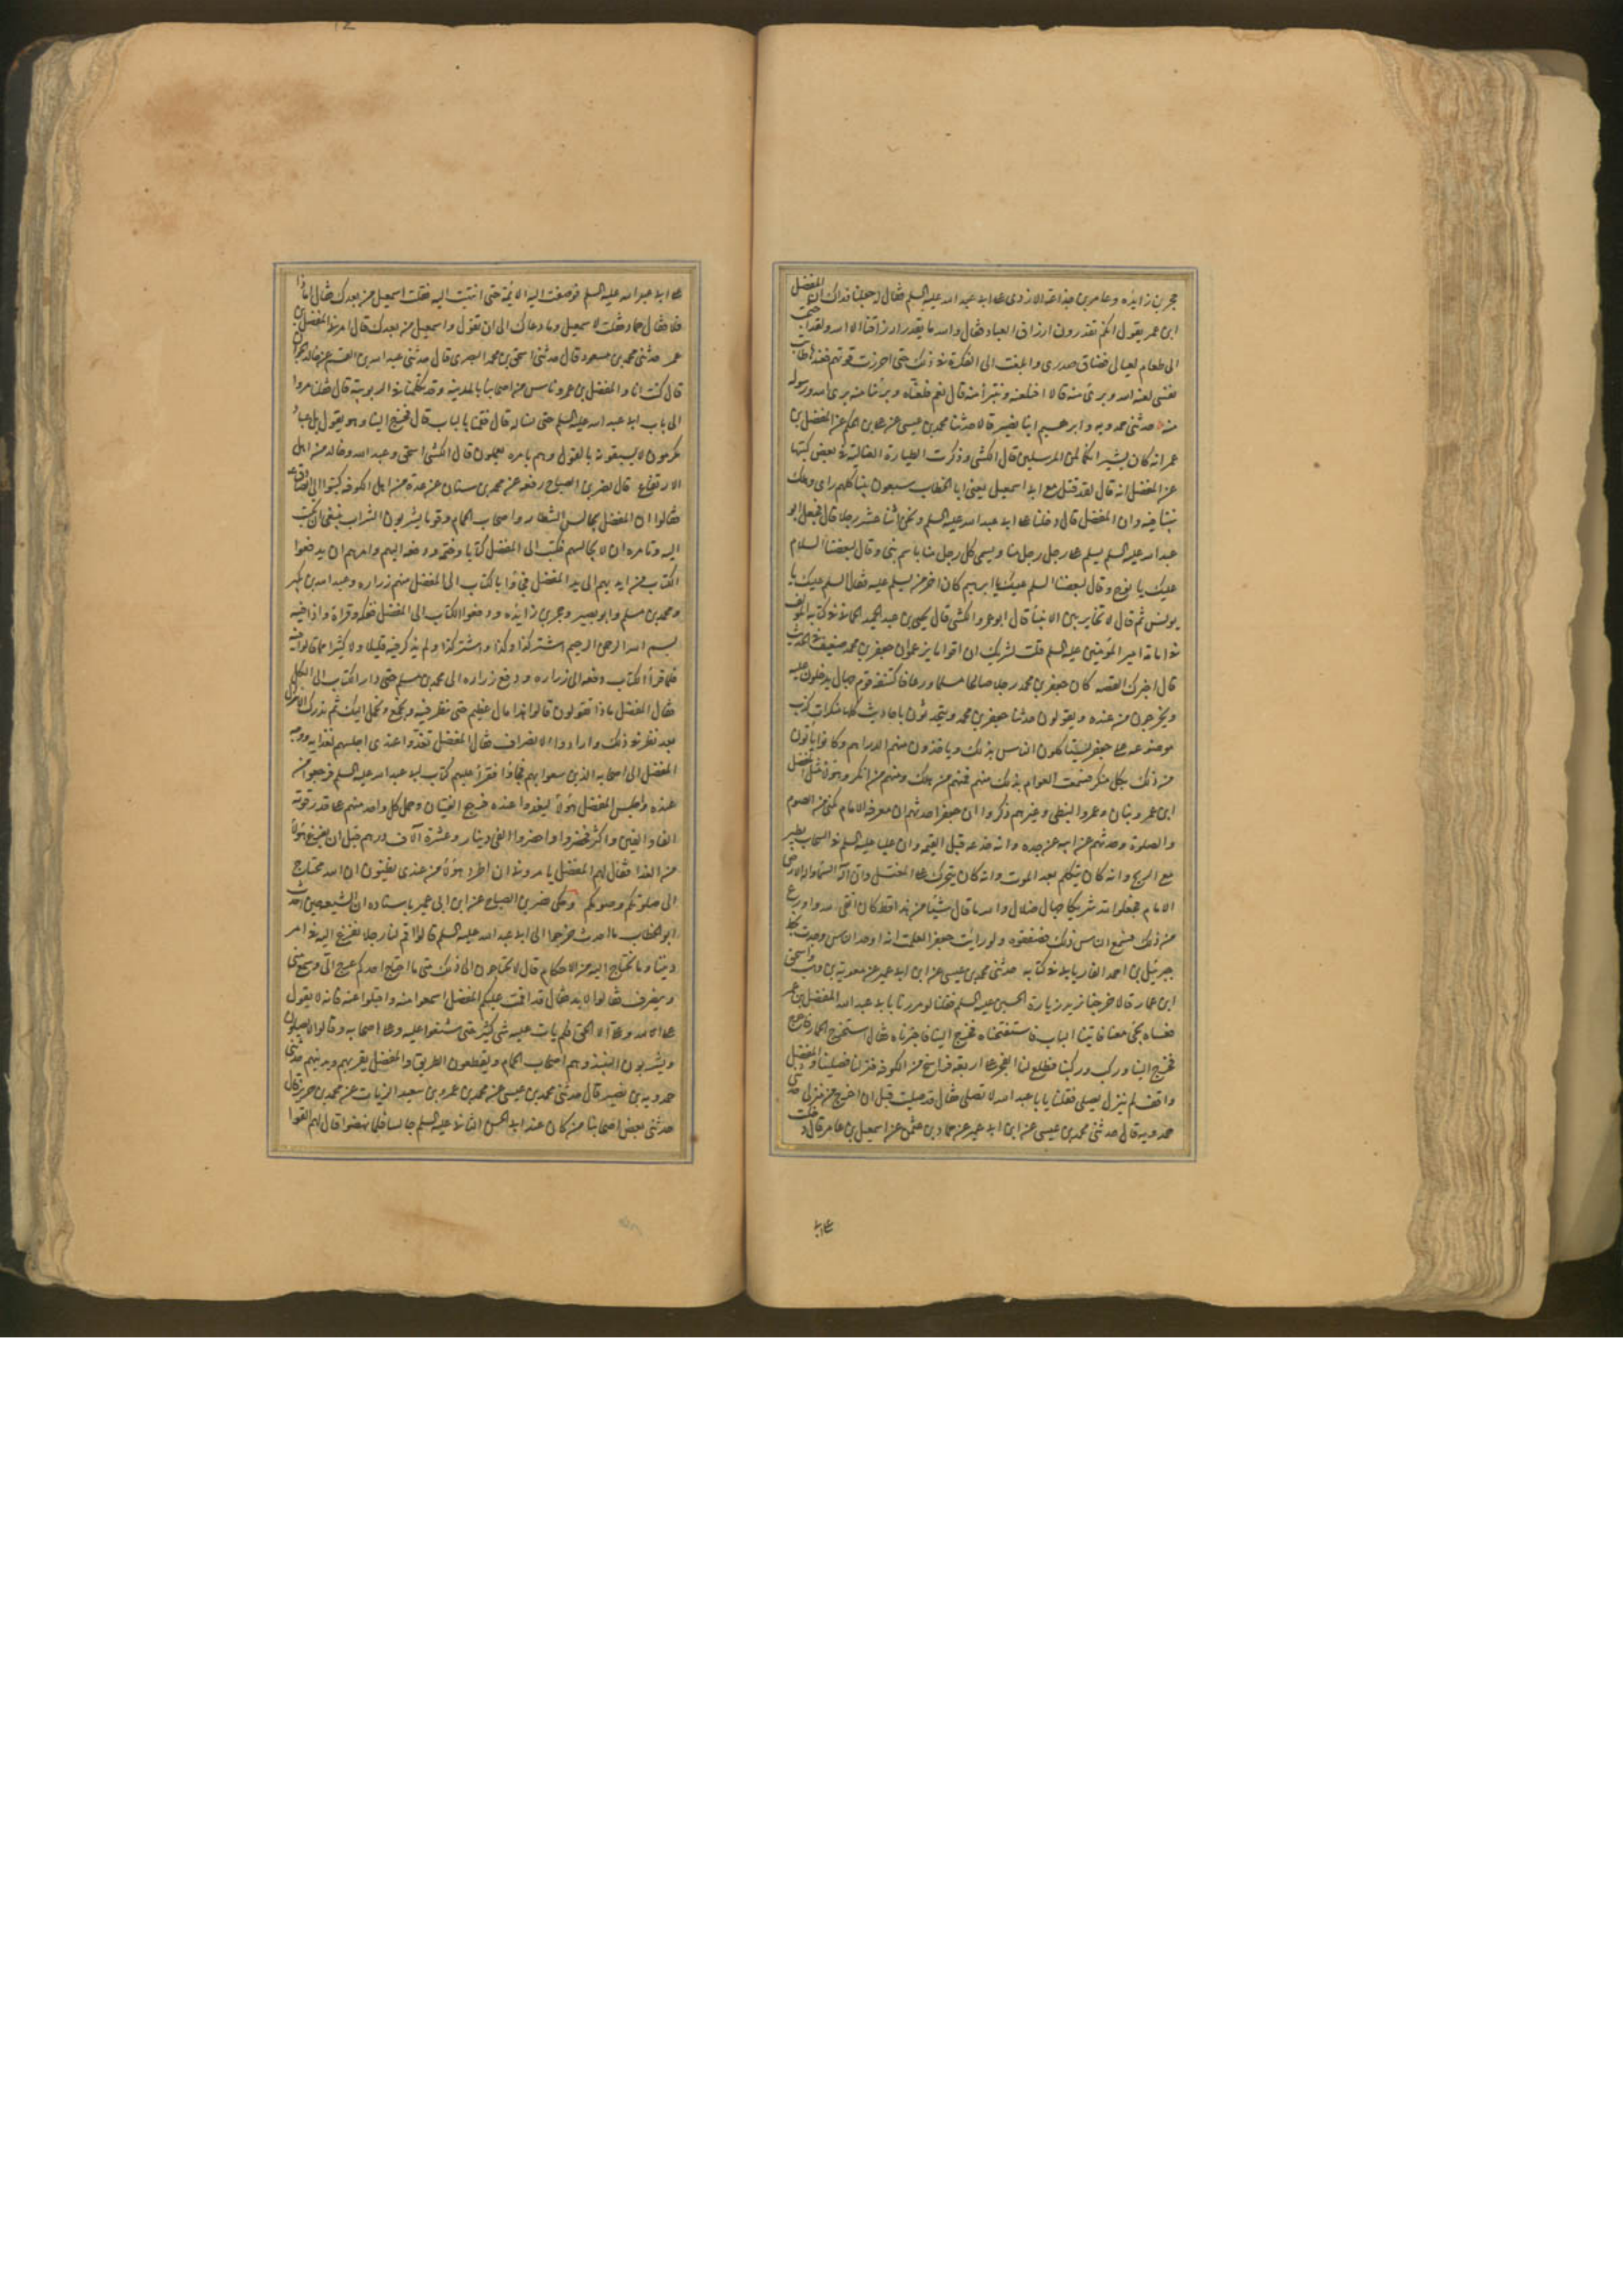 حجر بن زايده وعامر بن جذاعة الازدى على ابى عبد الله عليه السلم فقالا له جعلنا فداك ان المفضل
ابن عمر يقول انكم تقدرون ارزاق العباد فقال والله ما يقدر ارزاقنا الا الله ولقد احتجت
الى طعام لعيالى فضاق صدرى وابلغت الى الفكرة فى ذلك حتى احرزت قوتهم فعندها طابت
نفسى لعنه الله وبرئ منه قالا افتلعنه وتتبرأ منه قال نعم فلعناه وبرئنا منه برئ الله ورسوله
منه حدثنى حمدويه وابرهيم ابنا نصير قالا حدثنا محمد بن عيسى عن على بن الحكم عن المفضل بن
عمر انه كان يشير انكما لمن المرسلين قال الكشى وذكرت الطيارة الغالية فى بعض كتبها
عن المفضل انه قال لقد قتل مع ابى اسمعيل يعنى ابا الخطاب سبعون نبيا كلهم راى وهلك
نبينا فيه وان المفضل قال دخلنا على ابى عبد الله عليه السلم ونحن اثنا عشر رجلا قال فجعل ابو
عبد الله عليه السلم يسلم على رجل رجل منا ويسمى كل رجل منا باسم نبى وقال لبعضنا السلام
عليك يا نوح وقال لبعضنا السلم عليك يا ابرهيم وكان اخر من سلم عليه فقال السلم عليك يا
يونس ثم قال لا تخاير بين الانبيا قال ابو عمرو الكشى قال يحيى بن عبد الحميد الحمانى فى كتابه المؤلف
فى امامة امير المؤمنين عليه السلم قلت لشريك ان اقواما يزعمون ان جعفر بن محمد ضعيف فى الحديث
قال اخبرك القصة كان جعفر بن محمد رجلا صالحا مسلما ورعا فاكتنفه قوم جهال يدخلون عليه
ويخرجون من عنده ويقولون حدثنا جعفر بن محمد ويتحدثون باحاديث كلها منكرات كذب
موضوعة على جعفر ليستاكلون الناس بذلك وياخذون منهم الدراهم وكانوا ياتون
من ذلك بكل منكر فسمعت العوام بذلك منهم فمنهم من هلك ومنهم من انكر وهؤلاء مثل المفضل
ابن عمر وبنان وعمرو النبطى وغيرهم ذكروا ان جعفرا حدثهم ان معرفة الامام تكفى من الصوم
والصلوة وحدثهم عن ابيه عن جده وانه حدثه قبل القيمة وان عليا عليه السلم فى السحاب يطير
مع الريح وانه كان يتكلم بعد الموت وانه كان يتحرك على المغتسل وان اله السماء واله الارض
الامام فجعلوا لله شريكا جهال ضلال والله ما قال شيئا من هذا قط كان اتقى لله واورع
من ذلك فسمع الناس ذلك فضعفوه ولو رايت جعفرا لعلمت انه اوحد الناس وجدت بخط
جبرئيل بن احمد الفاريابى فى كتابه حدثنى محمد بن عيسى عن ابن ابى عمير عن معوية بن وهب واسحق
ابن عمار قالا خرجنا نريد زيارة الحسين عليه السلم فقلنا لو مررنا بابى عبد الله المفضل بن عمر
فعساه يجئ معنا فاتينا الباب فاستفتحناه فخرج الينا فاخبرناه فقال استخرج الحمار فاخرج
فخرج الينا وركب وركبنا فطلع لنا الفجر على اربعة فراسخ من الكوفة فنزلنا فصلينا والمفضل
واقف لم ينزل يصلى فقلنا يا با عبد الله لا تصلى فقال قد صليت قبل ان اخرج من منزلى حدثنى
حمدويه قال حدثنى محمد بن عيسى عن ابن ابى عمير عن حماد بن عثمن عن اسمعيل بن عامر قال دخلت
على ابى عبد الله عليه السلم فوصفت اليه الائمة حتى انتهيت اليه فقلت اسمعيل من بعدك فقال اما ذا
فلا فقال حماد فقلت لاسمعيل وما دعاك الى ان تقول واسمعيل من بعدك قال امرنى المفضل بن
عمر حدثنى محمد بن مسعود قال حدثنى اسحق بن محمد البصرى قال حدثنى عبد الله بن القسم عن خالد الجوان
قال كنت انا والمفضل بن عمر وناس من اصحابنا بالمدينة وقد تكلمنا فى الربوبية قال فقلنا مروا
الى باب ابى عبد الله عليه السلم حتى نساله قال فقمنا بالباب قال فخرج الينا وهو يقول بل عباد
مكرمون لا يسبقونه بالقول وهم بامره يعملون قال الكشى اسحق وعبد الله وخالد من اهل
الارتفاع قال نصر بن الصباح رفعه عن محمد بن سنان عن عدة من اهل الكوفة كتبوا الى الصادق ع
فقالوا ان المفضل يجالس الشطار واصحاب الحمام وقوما يشربون الشراب فينبغى ان تكتب
اليه وتامره ان لا يجالسهم فكتب الى المفضل كتابا وختم ودفعه اليهم وامرهم ان يدفعوا
الكتاب من ايديهم الى يد المفضل فجاؤا بالكتاب الى المفضل منهم زراره وعبد الله بن بكير
ومحمد بن مسلم وابو بصير وحجر بن زايده ودفعوا الكتاب الى المفضل ففكه وقراه واذا فيه
بسم الله الرحمن الرحيم اشتر كذا وكذا واشتر كذا ولم يذكر فيه قليلا ولا كثيرا مما قالوا فيه
فلما قرأ الكتاب دفعه الى زراره ودفع زراره الى محمد بن مسلم حتى دار الكتاب الى الكل
فقال المفضل ما ذا تقولون قالوا هذا مال عظيم حتى ننظر فيه ونجمع ونحمل اليك ثم ندرك الانزال
بعد نظر فى ذلك وارادوا الانصراف فقال المفضل تغدوا عندى اجلسهم لغدايه ووجه
المفضل الى اصحابه الذين سعوا بهم فجاؤا فقرأ عليهم كتاب ابى عبد الله عليه السلم فرجعوا من
عنده وحبس المفضل هؤلاء ليغدوا عنده فرجع الفتيان وحمل كل واحد منهم على قدر قوته
الفا والفين واكثر فحضروا واحضروا الفى دينار وعشرة آلاف درهم قبل ان يفرغ هؤلاء
من الغدا فقال لهم المفضل يامرونى ان اطرد هؤلاء من عندى يظنون ان الله محتاج
الى صلوتكم وصومكم وحكى نصر بن الصباح عن ابن ابى عمير باسناده ان الشيعة حين احدث
ابو الخطاب ما احدث خرجوا الى ابى عبد الله عليه السلم قالوا اقم لنا رجلا نفزع اليه فى امر
ديننا وما نحتاج اليه من الاحكام قال لا تحتاجون الى ذلك متى ما احتاج احدكم عرج الى وسمع منى
وينصرف فقالوا لا بد فقال قد اقمت عليكم المفضل اسمعوا منه واقبلوا عنه فانه لا يقول
على الله وعلى الا الحق فلم يات عليه شى كثير حتى شنعوا عليه وعلى اصحابه وقالوا لا يصلون
ويشربون النبيذ وهم اصحاب الحمام ويقطعون الطريق والمفضل يقربهم ويدنيهم حدثنى
حمدويه بن نصير قال حدثنى محمد بن عيسى عن محمد بن عمرو بن سعيد الزيات عن محمد بن حريز قال
حدثنى بعض اصحابنا من كان عند ابى الحسن الثانى عليه السلم جالسا فلما نهضوا قال لهم القوا